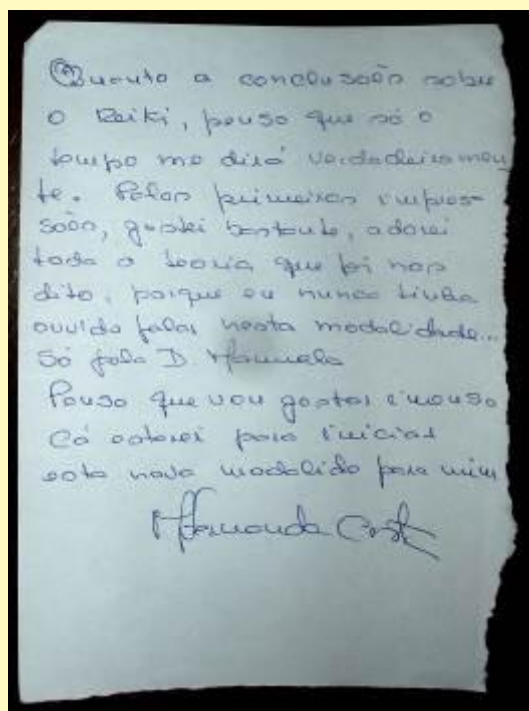 Quanto a conclusão sobre
o Reiki, penso que só o
tempo me dirá verdadeiramen
te. Pelas primeiras impres-
sões, gostei bastante, adorei
toda a teoria que foi nos
dito, porque eu nunca tinha
ouvido falar nesta modalidade...
Só pela D. Manuela
Penso que vou gostar imenso
Cá estarei para iniciar
esta nova modalida para mim
Costa